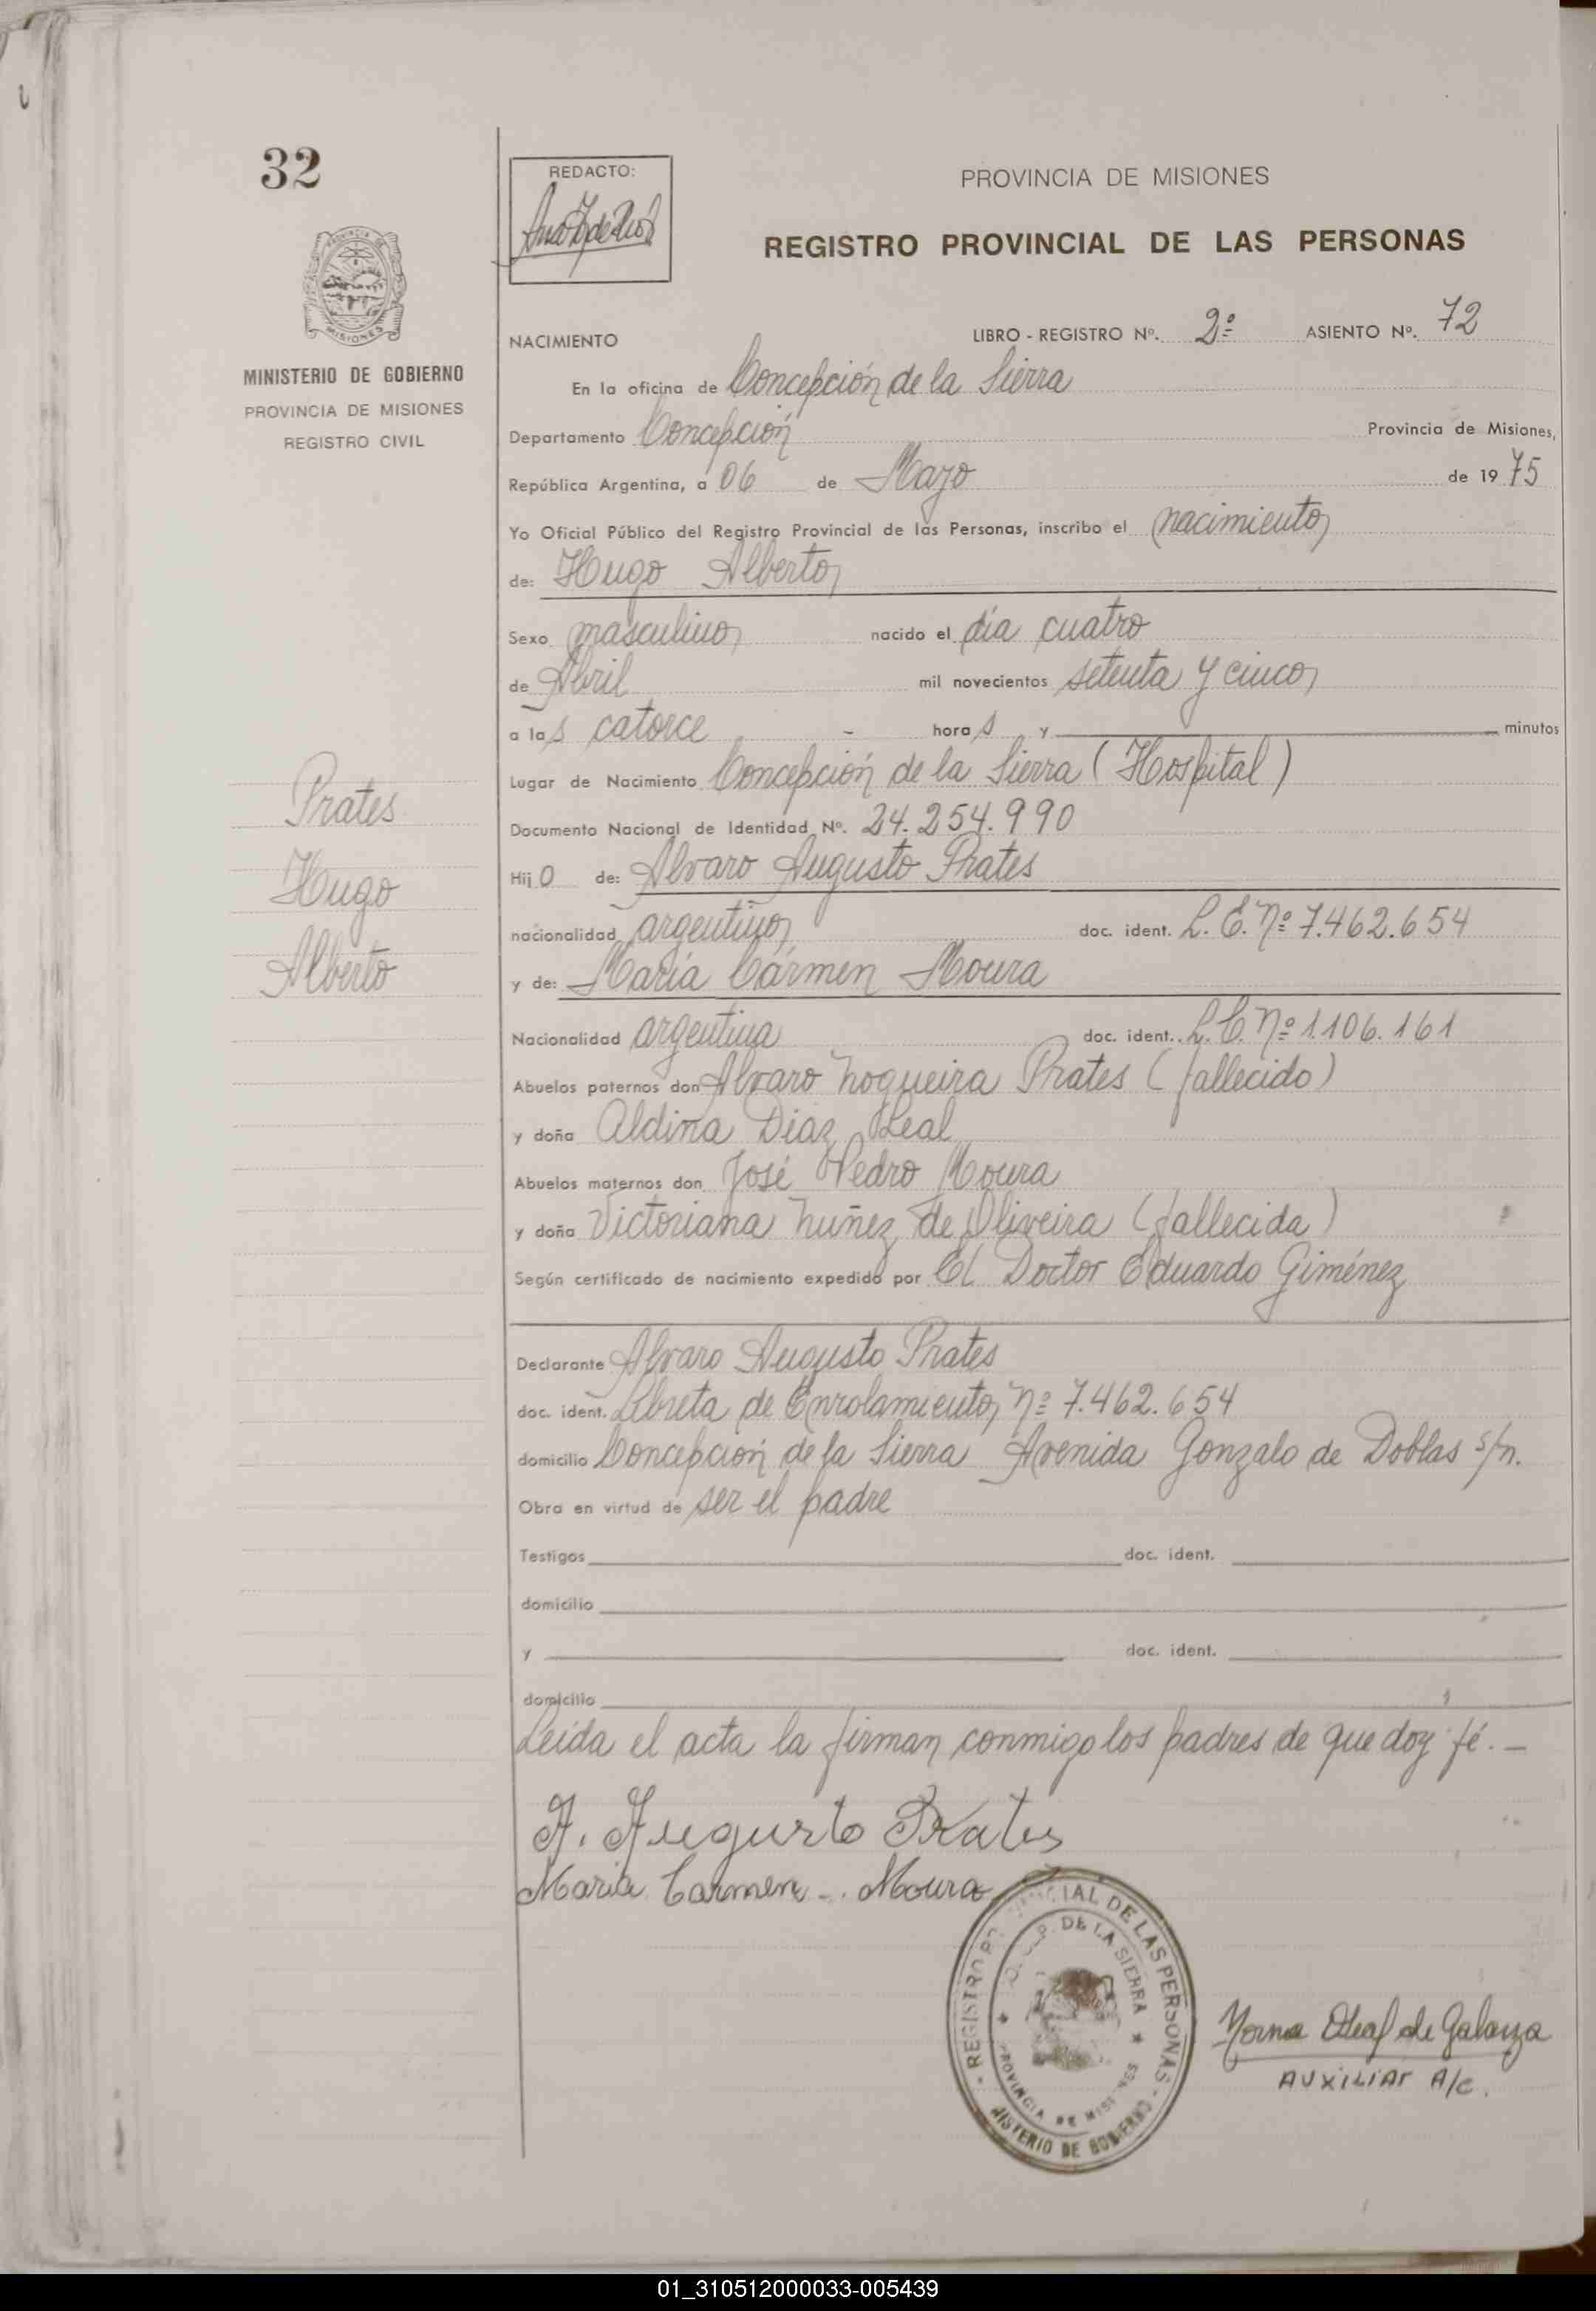 32
PROVINCIA DE MISIONES
MINISTERIO DE GOBIERNO
PROVINCIA DE MISIONES
REGISTRO CIVIL
Prates
Hugo
Alberto
REDACTO:
PROVINCIA DE MISIONES
REGISTRO PROVINCIAL DE LAS PERSONAS
NACIMIENTO LIBRO - REGISTRO Nº. 2º ASIENTO Nº. 72
En la oficina de Concepción de la Sierra
Departamento Concepción Provincia de Misiones,
República Argentina, a 06 de Mayo de 1975
Yo Oficial Público del Registro Provincial de las Personas, inscribo el nacimiento
de: Hugo Alberto
Sexo masculino nacido el día cuatro
de Abril mil novecientos setenta y cinco
a las catorce - horas y minutos
Lugar de Nacimiento Concepción de la Sierra (Hospital)
Documento Nacional de Identidad Nº. 24.254.990
Hijo de: Alvaro Augusto Prates
nacionalidad argentino doc. ident. L. E. Nº 7.462.654
y de: María Cármen Moura
Nacionalidad argentina doc. ident. L. C. Nº 1.106.161
Abuelos paternos don Alvaro Nogueira Prates (fallecido)
y doña Aldina Diaz Leal
Abuelos maternos don José Pedro Moura
y doña Victoriana Nuñez de Oliveira (fallecida)
Según certificado de nacimiento expedido por El Doctor Eduardo Giménez
Declarante Alvaro Augusto Prates
doc. ident. Libreta de Enrolamiento Nº 7.462.654
domicilio Concepción de la Sierra Avenida Gonzalo de Doblas s/n.
Obra en virtud de ser el padre
Testigos doc. ident.
domicilio
y doc. ident.
domicilio
Leída el acta la firman conmigo los padres de que doy fé. -
A. Augusto Prates
Maria Carmen - Moura
REGISTRO PROVINCIAL DE LAS PERSONAS
DE LA SIERRA
PROVINCIA DE MISIONES
MINISTERIO DE GOBIERNO
Norma de Galarza
AUXILIAR A/C.
01_310512000033-005439